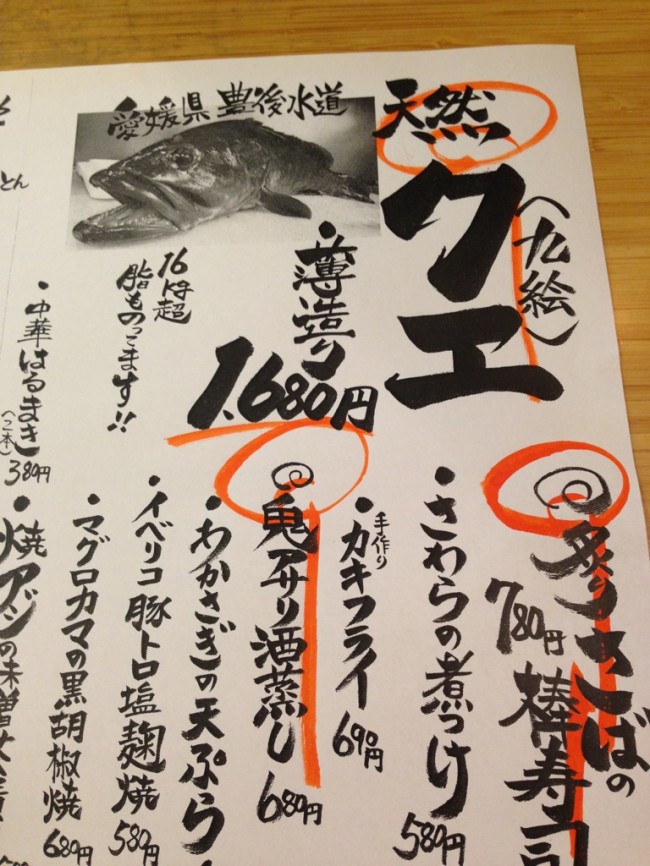 天然
クエ
(九絵)
愛媛県 豊後水道
・薄造り
1.680円
16kg超
脂ものってます!!
炙りさばの
棒寿司
780円
・さわらの煮つけ
580円
・手作り
カキフライ
690円
鬼アサリ酒蒸し
680円
・わかさぎの天ぷら
・イベリコ豚トロ塩麹焼
580円
・マグロカマの黒胡椒焼
680円
・中華はるまき
(二本)
380円
・焼アジの味噌
とん